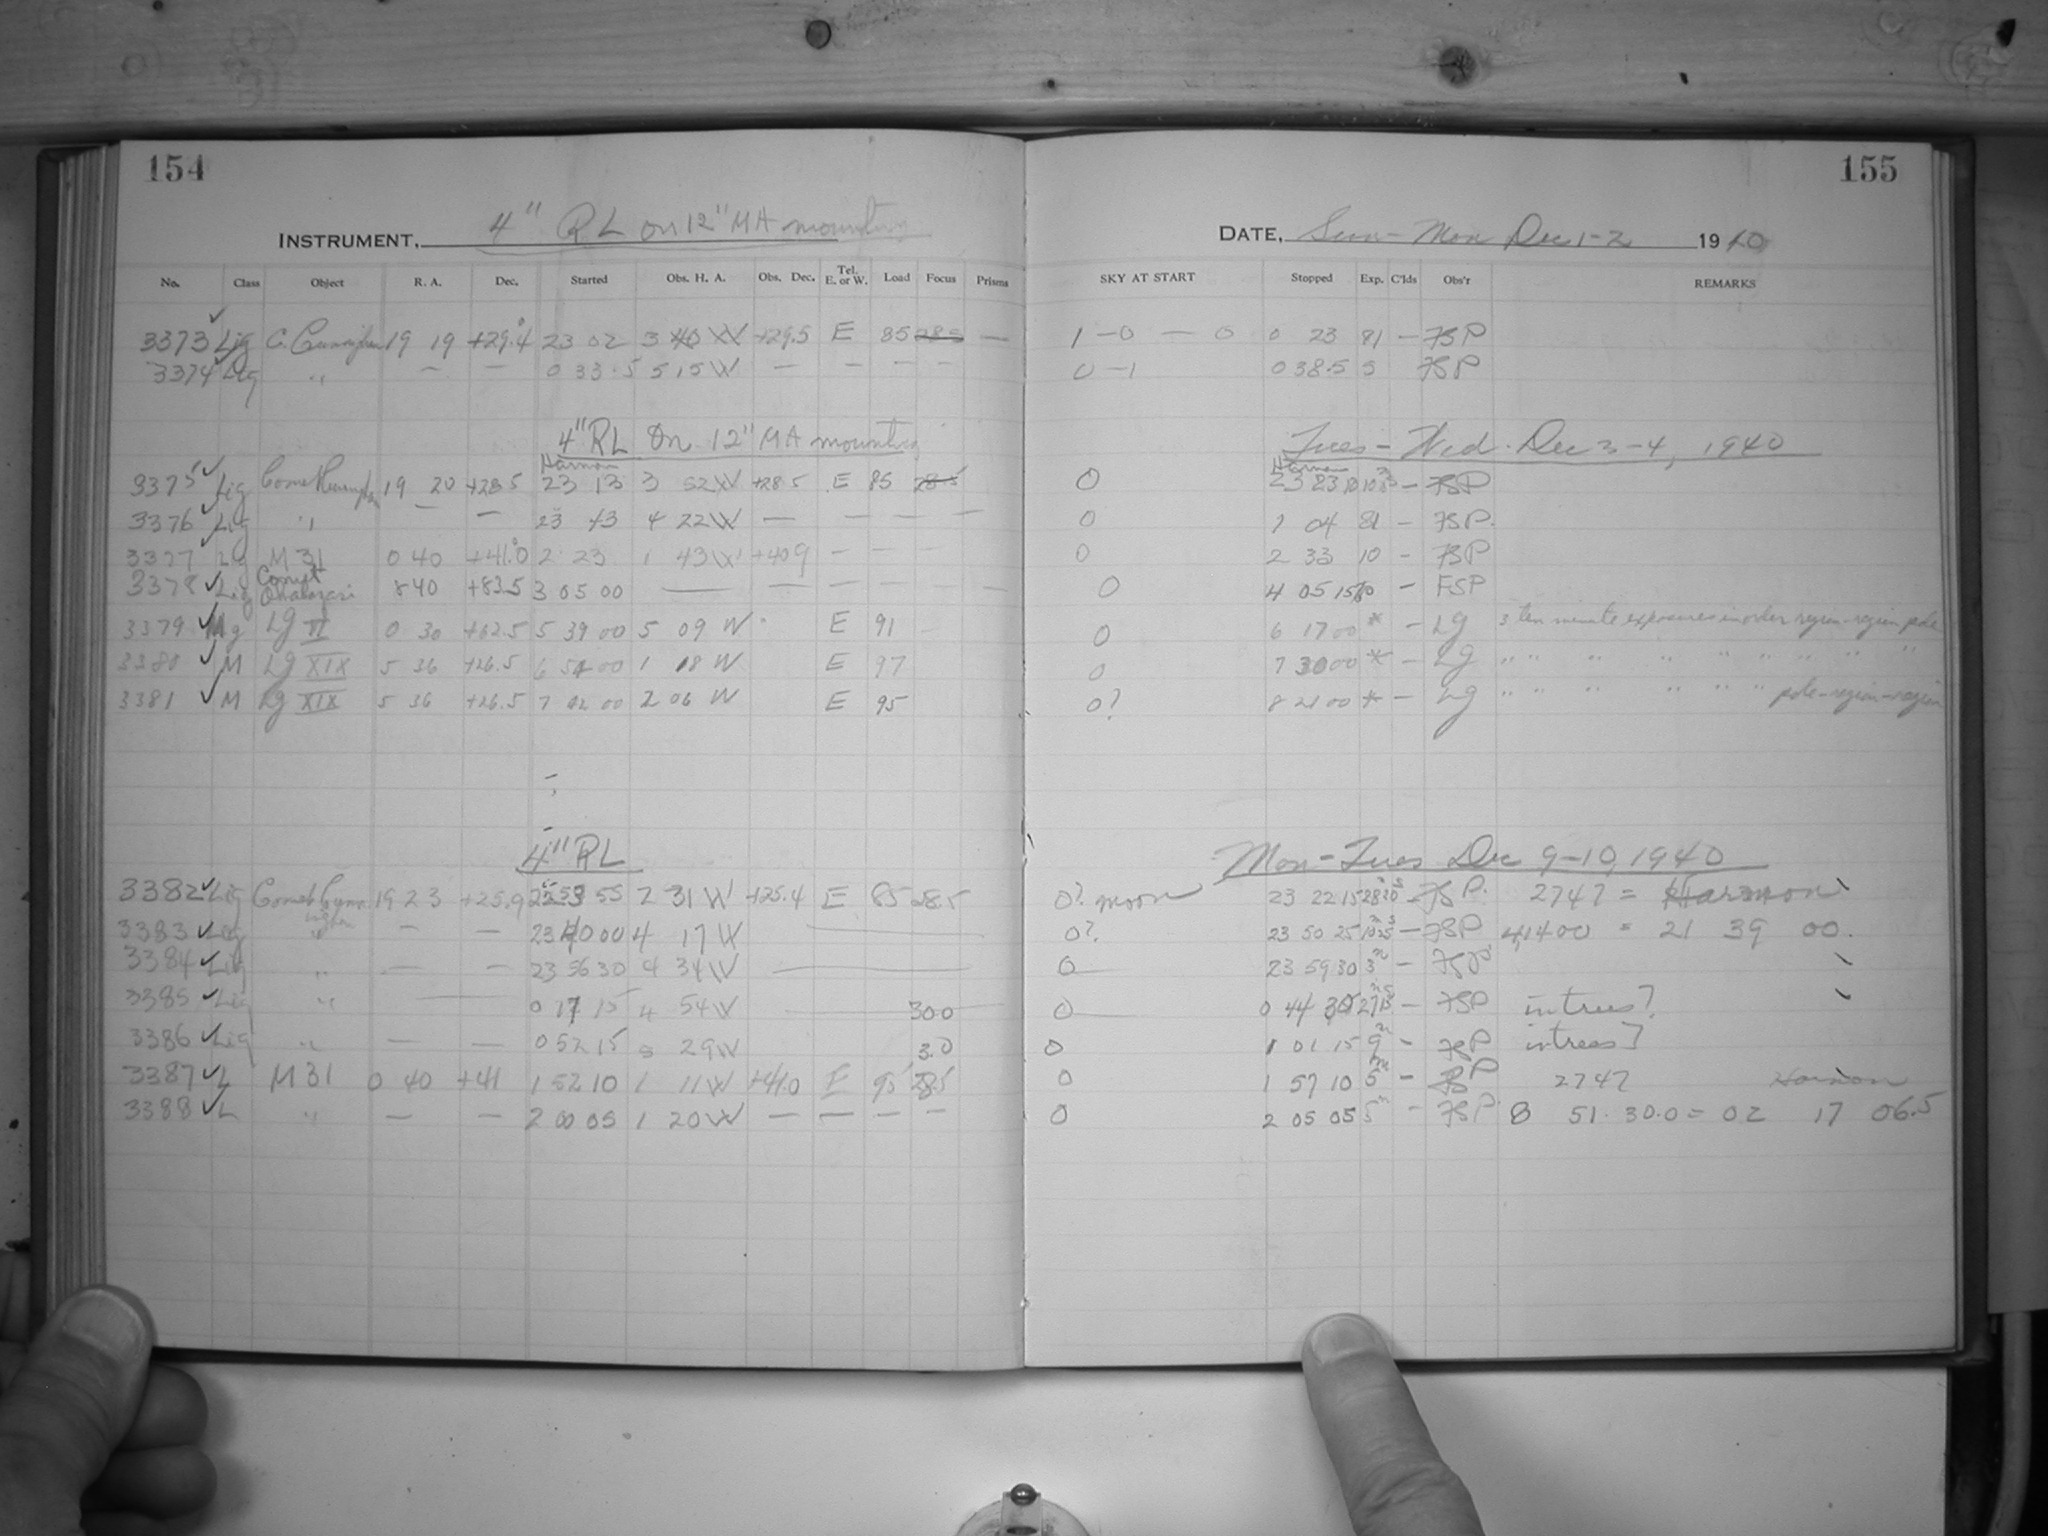 154
155
INSTRUMENT, 4" RL on 12" MA mounting
DATE, Sun-Mon Dec 1-2 1940
No. Class Object R. A. Dec. Started Obs. H. A. Obs. Dec. Tel. E. or W. Load Focus Prisms
SKY AT START Stopped Exp. C'lds Obs'r REMARKS
3373 Lig C. 19 19 +29.4 23 02 3 40 W +29.5 E 85 — 1 – 0 — 0 0 23 81 — FSP
3374 Lig " — — 0 33.5 5 15 W — — — — 0 – 1 0 38.5 5 FSP
4" RL On 12" MA mounting
Tues – Wed. Dec 3-4, 1940
Harmon
Harmon
3375 Lig Comet 19 20 +28.5 23 13 3 52 W +28.5 E 85 0 23 23 — FSP
3376 Lig " — — 23 43 4 22 W — — — — 0 1 04 81 – FSP.
3377 Lg M 31 0 40 +41.0 2 23 1 43 W +40.9 — — — 0 2 33 10 – FSP
3378 Lig Comet 8 40 +83.5 3 05 00 — — — — — 0 4 05 15 – FSP
3379 Mg Lg VI 0 30 +62.5 5 39 00 5 09 W E 91 0 6 17 00 * – Lg 3 ten minute exposures in order region-region pole
3380 M Lg XIX 5 36 +26.5 6 00 1 18 W E 97 0 7 30 00 * – Lg " " " " " " " "
3381 M Lg XIX 5 36 +26.5 7 42 00 2 06 W E 95 0? 8 21 00 * – Lg " " " " " " pole-region-region
4" RL
Mon – Tues Dec 9-10, 1940
3382 Lig Comet 19 23 +25.9 55 2 31 W +25.4 E 85 28.5 0? moon 23 22 15 – FSP. 2747 = Harmon
3383 Lig " — — 23 40 00 4 17 W — 0? 23 50 25 — FSP 4,14 00 = 21 39 00.
3384 Lig " — — 23 56 30 4 34 W — 0 23 59 30 3m – FSP
3385 Lig " — 0 17 15 4 54 W 300 0 0 44 30 – FSP in trees?
3386 Lig " — — 0 52 15 5 29 W 3.0 0 1 01 15 9m – FSP in trees?
3387 L M 31 0 40 +41 1 52 10 1 11 W +41.0 E 95 285 0 1 57 10 5m – FSP 2747 Harmon
3388 L " — — 2 00 05 1 20 W — — — — 0 2 05 05 5m – FSP. 8 51. 30.0 = 02 17 06.5